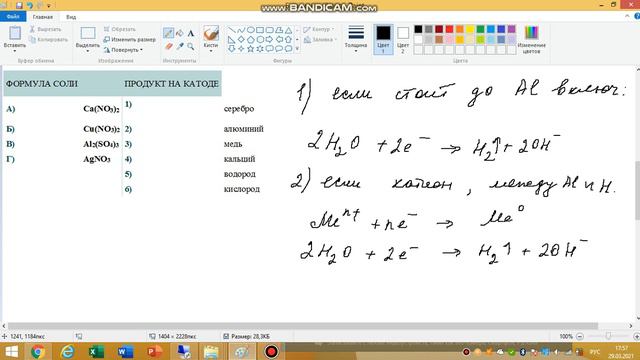 www.BANDICAM.com
Вставить
Вырезать
Копировать
Буфер обмена
Выделить
Обрезать
Изменить размер
Повернуть
Изображение
Инструменты
Кисти
Контур
Заливка
Фигуры
Толщина
Цвет 1
Цвет 2
Цвета
Изменение цветов
ФОРМУЛА СОЛИ ПРОДУКТ НА КАТОДЕ
А) Ca(NO₃)₂ 1) серебро
Б) Cu(NO₃)₂ 2) алюминий
В) Al₂(SO₄)₃ 3) медь
Г) AgNO₃ 4) кальций
5) водород
6) кислород
1) если стоит до Al включ:
2H₂O + 2e⁻ → H₂↑ + 2OH⁻
2) если катион, между Al и H.
Meⁿ⁺ + ne⁻ → Me⁰
2H₂O + 2e⁻ → H₂↑ + 2OH⁻
1241, 1184пкс
1404 × 2228пкс
Размер: 28,3КБ
100%
РУС
17:57
29.03.2021